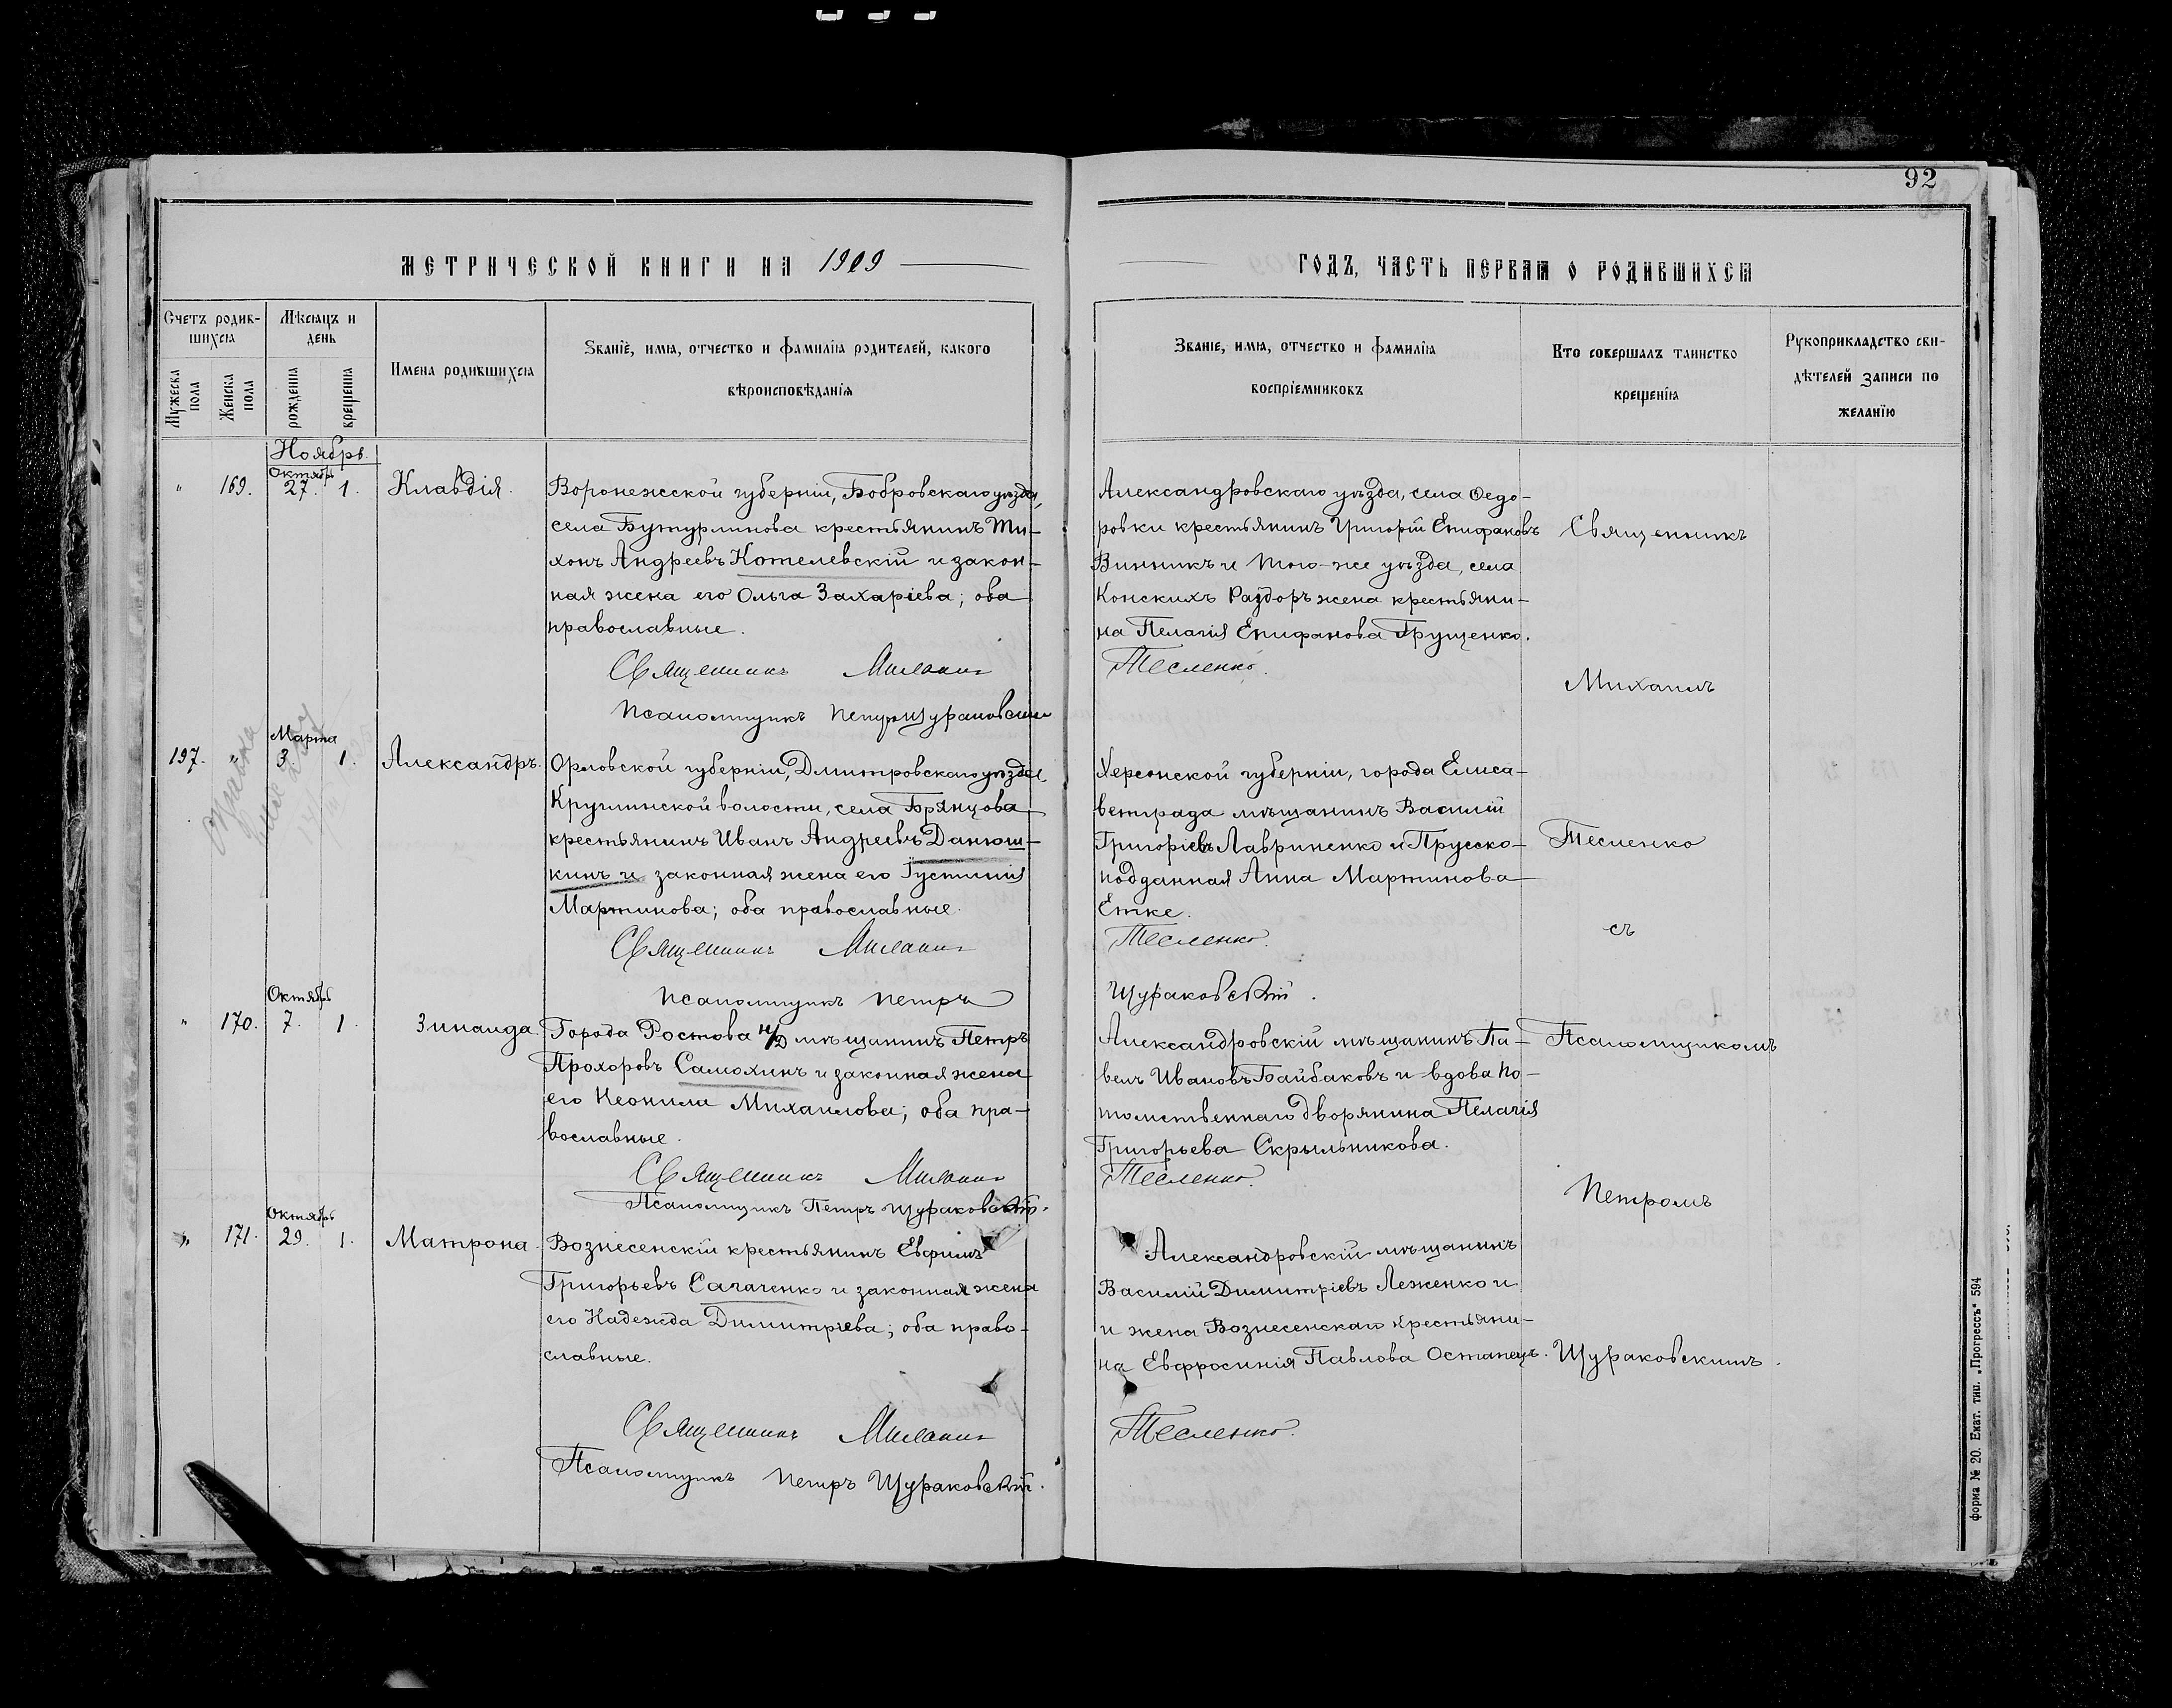 92
МЕТРИЧЕСКОЙ КНИГИ НА 1909
ГОДЪ, ЧАСТЬ ПЕРВАЯ О РОДИВШИХСЯ
Счетъ родив-
шихся
Мужеска
пола
Женска
пола
Мѣсяцъ и
день
рожденія
крещенія
Имена родившихся
Званіе, имя, отчество и фамилія родителей, какого
вѣроисповѣданія
Званіе, имя, отчество и фамилія
воспріемниковъ
Кто совершалъ таинство
крещенія
Рукоприкладство сви-
дѣтелей записи по
желанію
Ноябрь
Октябрь
" 169. 27. 1. Клавдія.
Воронежской губерніи, Бобровскаго уѣзда,
села Бутурлинова крестьянинъ Ти-
хонъ Андреевъ Котелевскій и закон-
ная жена его Ольга Захаріева; оба
православные.
Священникъ Михаилъ
Псаломщикъ Петръ Щураковскій
Александровскаго уѣзда, села Ѳедо-
ровки крестьянинъ Григорій Епифановъ
Винникъ и того-же уѣзда, села
Конскихъ Раздоръ жена крестьяни-
на Пелагія Епифанова Грущенко.
Тесленко.
Марта
197. " 3. 1. Александръ.
Орловской губерніи, Дмитровскаго уѣзда,
Круглинской волости, села Брянцова
крестьянинъ Иванъ Андреевъ Данюш-
кинъ и законная жена его Іустинія
Мартинова; оба православные.
Священникъ Михаилъ
Псаломщикъ Петръ
Херсонской губерніи, города Елиса-
ветграда мѣщанинъ Василій
Григоріевъ Лавриненко и Прусско-
подданная Анна Мартинова
Етке.
Тесленко.
Щураковскій.
Октябрь
" 170. 7. 1. Зинаида
Города Ростова Н/Д мѣщанинъ Петръ
Прохоровъ Самохинъ и законная жена
его Неонила Михаилова; оба пра-
вославные.
Священникъ Михаилъ
Псаломщикъ Петръ Щураковскій.
Александровскій мѣщанинъ Па-
велъ Ивановъ Байбаковъ и вдова по-
томственнаго дворянина Пелагія
Григорьева Скрыльникова.
Тесленко.
Октябрь
" 171. 29. 1. Матрона.
Вознесенскій крестьянинъ Евфимъ
Григорьевъ Сагаченко и законная жена
его Надежда Димитріева; оба право-
славные.
Священникъ Михаилъ
Псаломщикъ Петръ Щураковскій.
Александровскій мѣщанинъ
Василій Димитріевъ Леженко и
и жена Вознесенскаго крестьяни-
на Евфросинія Павлова Останецъ.
Тесленко.
Священникъ
Михаилъ
Тесленко
съ
Псаломщикомъ
Петромъ
Щураковскимъ.
форма № 20. Екат. тип. „Прогрессъ" 594